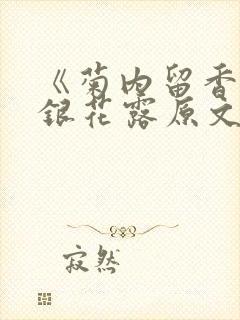 《菊内留香
銀花露原文
寂然